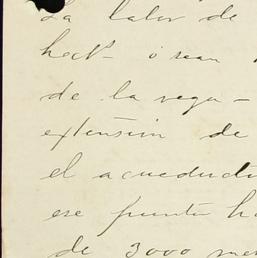 La labor de
hects o sean
de la vega -
extensión de
el acueducto
ese punto ha
de 3000 met